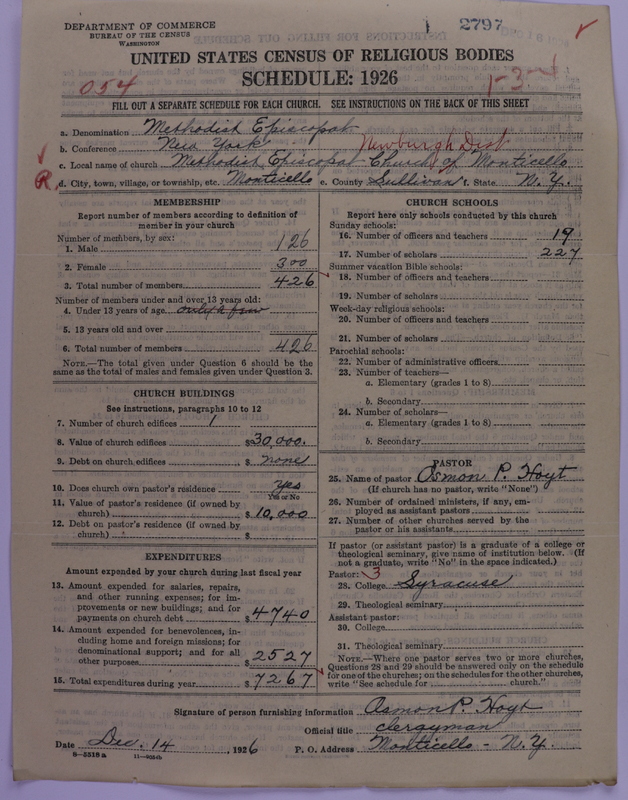 2797
DEPARTMENT OF COMMERCE
BUREAU OF THE CENSUS
WASHINGTON
UNITED STATES CENSUS OF RELIGIOUS BODIES
SCHEDULE: 1926
054
1-3-
FILL OUT A SEPARATE SCHEDULE FOR EACH CHURCH. SEE INSTRUCTIONS ON THE BACK OF THIS SHEET
a. Denomination Methodist Episcopal
b. Conference New York Newburgh Dist
c. Local name of church Methodist Episcopal Church of Monticello
R d. City, town, village, or township, etc. Monticello e. County Sullivan f. State N. Y.
MEMBERSHIP
Report number of members according to definition of
member in your church
Number of members, by sex:
1. Male 126
2. Female 300
3. Total number of members 426
Number of members under and over 13 years old:
4. Under 13 years of age only a few
5. 13 years old and over
6. Total number of members 426
NOTE.—The total given under Question 6 should be the
same as the total of males and females given under Question 3.
CHURCH BUILDINGS
See instructions, paragraphs 10 to 12
7. Number of church edifices 1
8. Value of church edifices $30,000.
9. Debt on church edifices $ none
10. Does church own pastor's residence Yes
Yes or No
11. Value of pastor's residence (if owned by
church) $10,000
12. Debt on pastor's residence (if owned by
church) $
EXPENDITURES
Amount expended by your church during last fiscal year
13. Amount expended for salaries, repairs,
and other running expenses; for im-
provements or new buildings; and for
payments on church debt $4740
14. Amount expended for benevolences, in-
cluding home and foreign missions; for
denominational support; and for all
other purposes $2527
15. Total expenditures during year $7267
CHURCH SCHOOLS
Report here only schools conducted by this church
Sunday schools:
16. Number of officers and teachers 19
17. Number of scholars 227
Summer vacation Bible schools:
18. Number of officers and teachers
19. Number of scholars
Week-day religious schools:
20. Number of officers and teachers
21. Number of scholars
Parochial schools:
22. Number of administrative officers
23. Number of teachers—
a. Elementary (grades 1 to 8)
b. Secondary
24. Number of scholars—
a. Elementary (grades 1 to 8)
b. Secondary
PASTOR
25. Name of pastor Osmon P. Hoyt
(If church has no pastor, write "None")
26. Number of ordained ministers, if any, em-
ployed as assistant pastors
27. Number of other churches served by the
pastor or his assistants
If pastor (or assistant pastor) is a graduate of a college or
theological seminary, give name of institution below. (If
not a graduate, write "No" in the space indicated.)
Pastor: 3
28. College Syracuse
29. Theological seminary
Assistant pastor:
30. College
31. Theological seminary
NOTE.—Where one pastor serves two or more churches,
Questions 28 and 29 should be answered only on the schedule
for one of the churches; on the schedules for the other churches,
write "See schedule for church."
Signature of person furnishing information Osmon P. Hoyt
Official title Clergyman
Date Dec. 14, 1926 P. O. Address Monticello - N. Y.
8-5518a